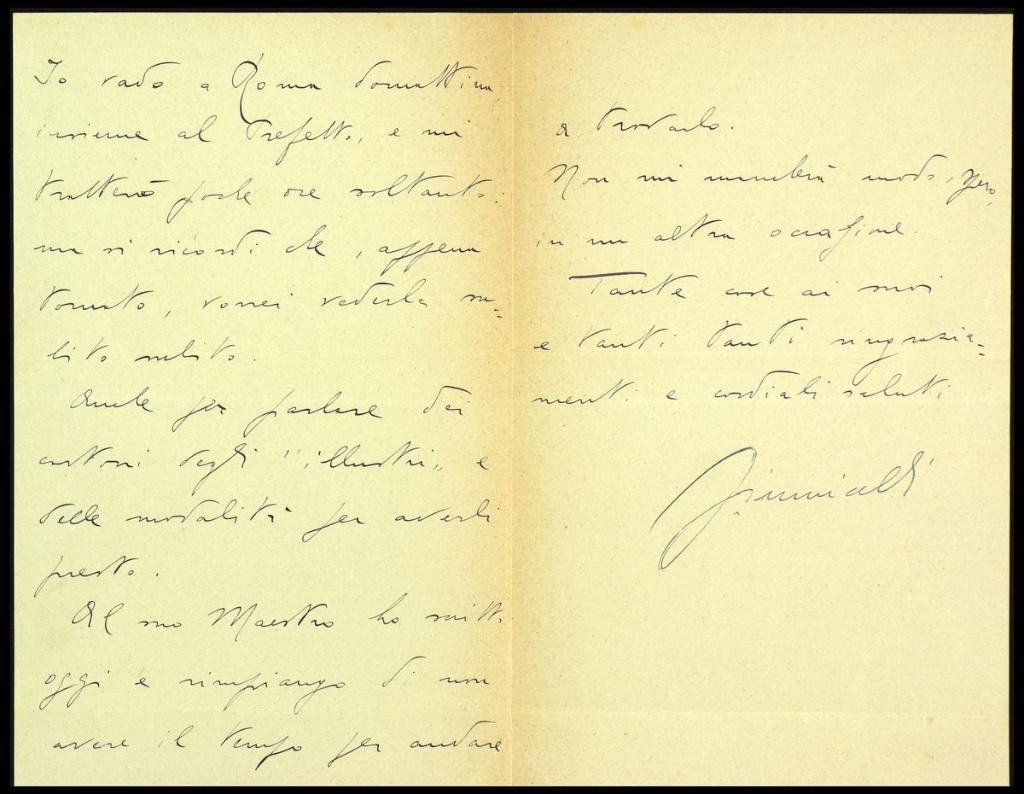 Io vado a Roma domattina,
insieme al Prefetto, e mi
tratterrò poche ore soltanto:
ma si ricordi che, appena
tornato, vorrei vederla su=
bito subito.
Anche per parlare dei
cartoni degli "illustri" e
delle modalità per averli
presto.
Al suo Maestro ho scritto
oggi e rimpiango di non
avere il tempo per andare
a trovarlo.
Non mi mancherà modo, però,
in un altra occasione.
Tante cose ai suoi
e tanti tanti ringrazia=
menti e cordiali saluti